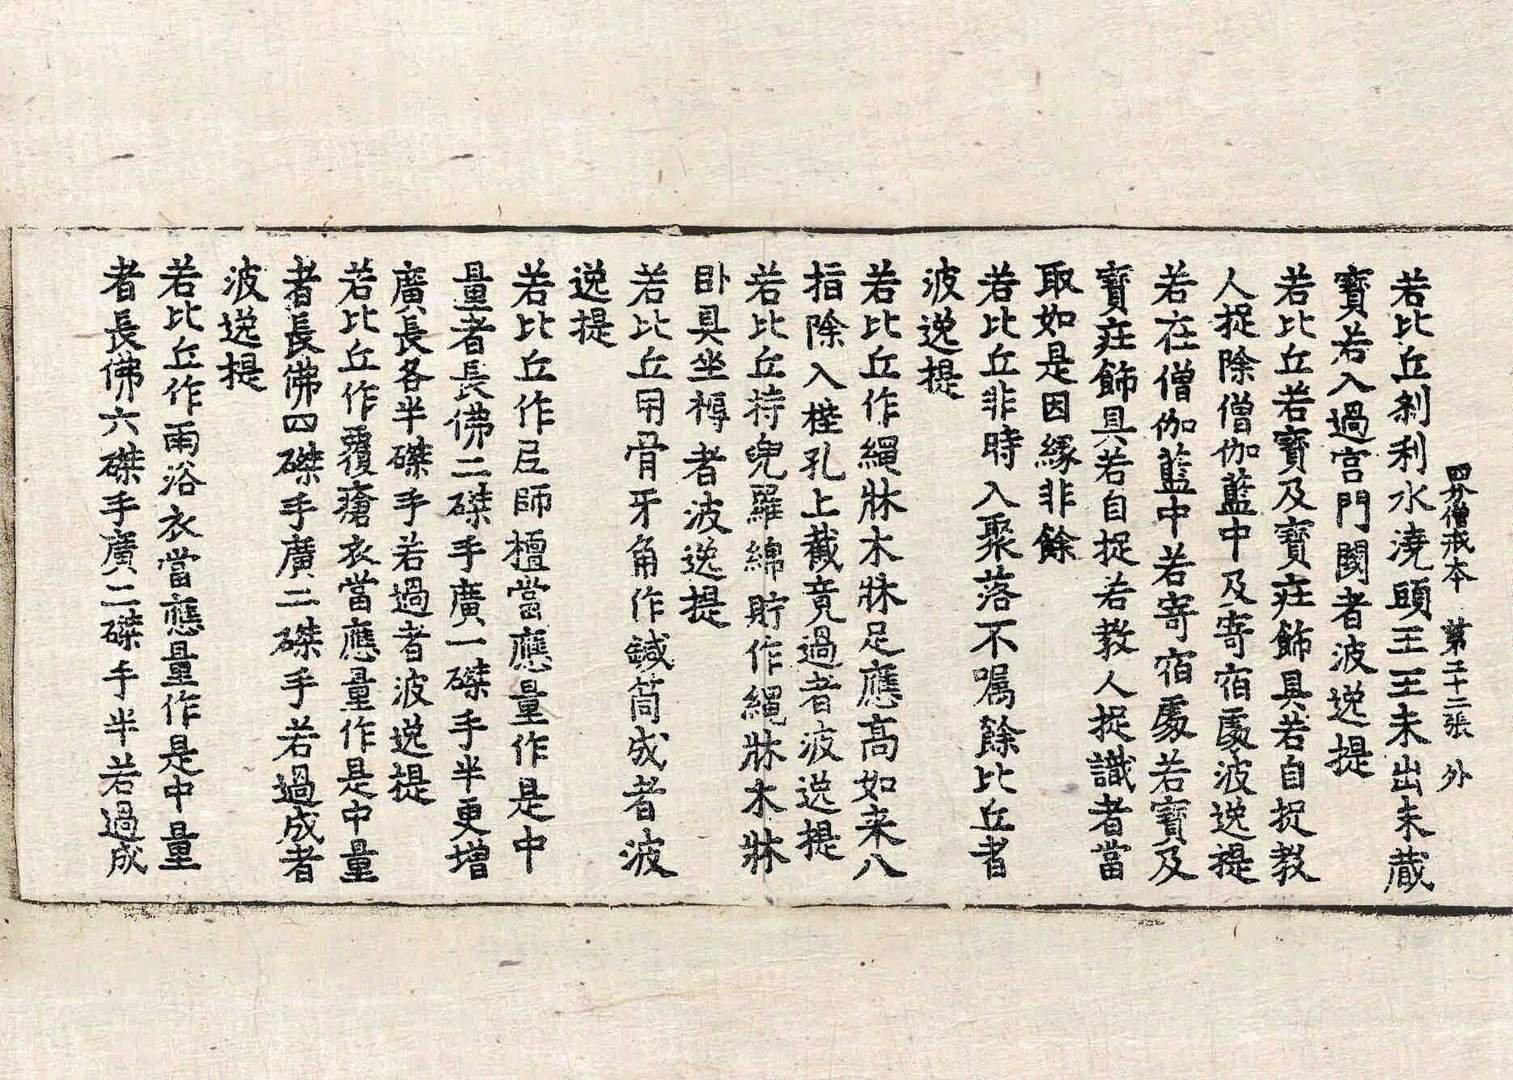 四分僧戒本 第三十二張 外
若比丘刹利水澆頭王王未出未蔵
寶若入過宮門閾者波逸提
若比丘若寶及寶莊飾具若自捉教
人捉除僧伽藍中及寄宿處波逸提
若在僧伽藍中若寄宿處若寶及
寶莊飾具若自捉若教人捉識者當
取如是因緣非餘
若比丘非時入聚落不嘱餘比丘者
波逸提
若比丘作繩牀木牀足應高如来八
指除入梐孔上截竟過者波逸提
若比丘持兜羅綿貯作繩牀木牀
卧具坐褥者波逸提
若比丘用骨牙角作鍼筒成者波
逸提
若比丘作尼師檀當應量作是中
量者長佛二磔手廣一磔手半更增
廣長各半磔手若過者波逸提
若比丘作覆瘡衣當應量作是中量
者長佛四磔手廣二磔手若過成者
波逸提
若比丘作雨浴衣當應量作是中量
者長佛六磔手廣二磔手半若過成